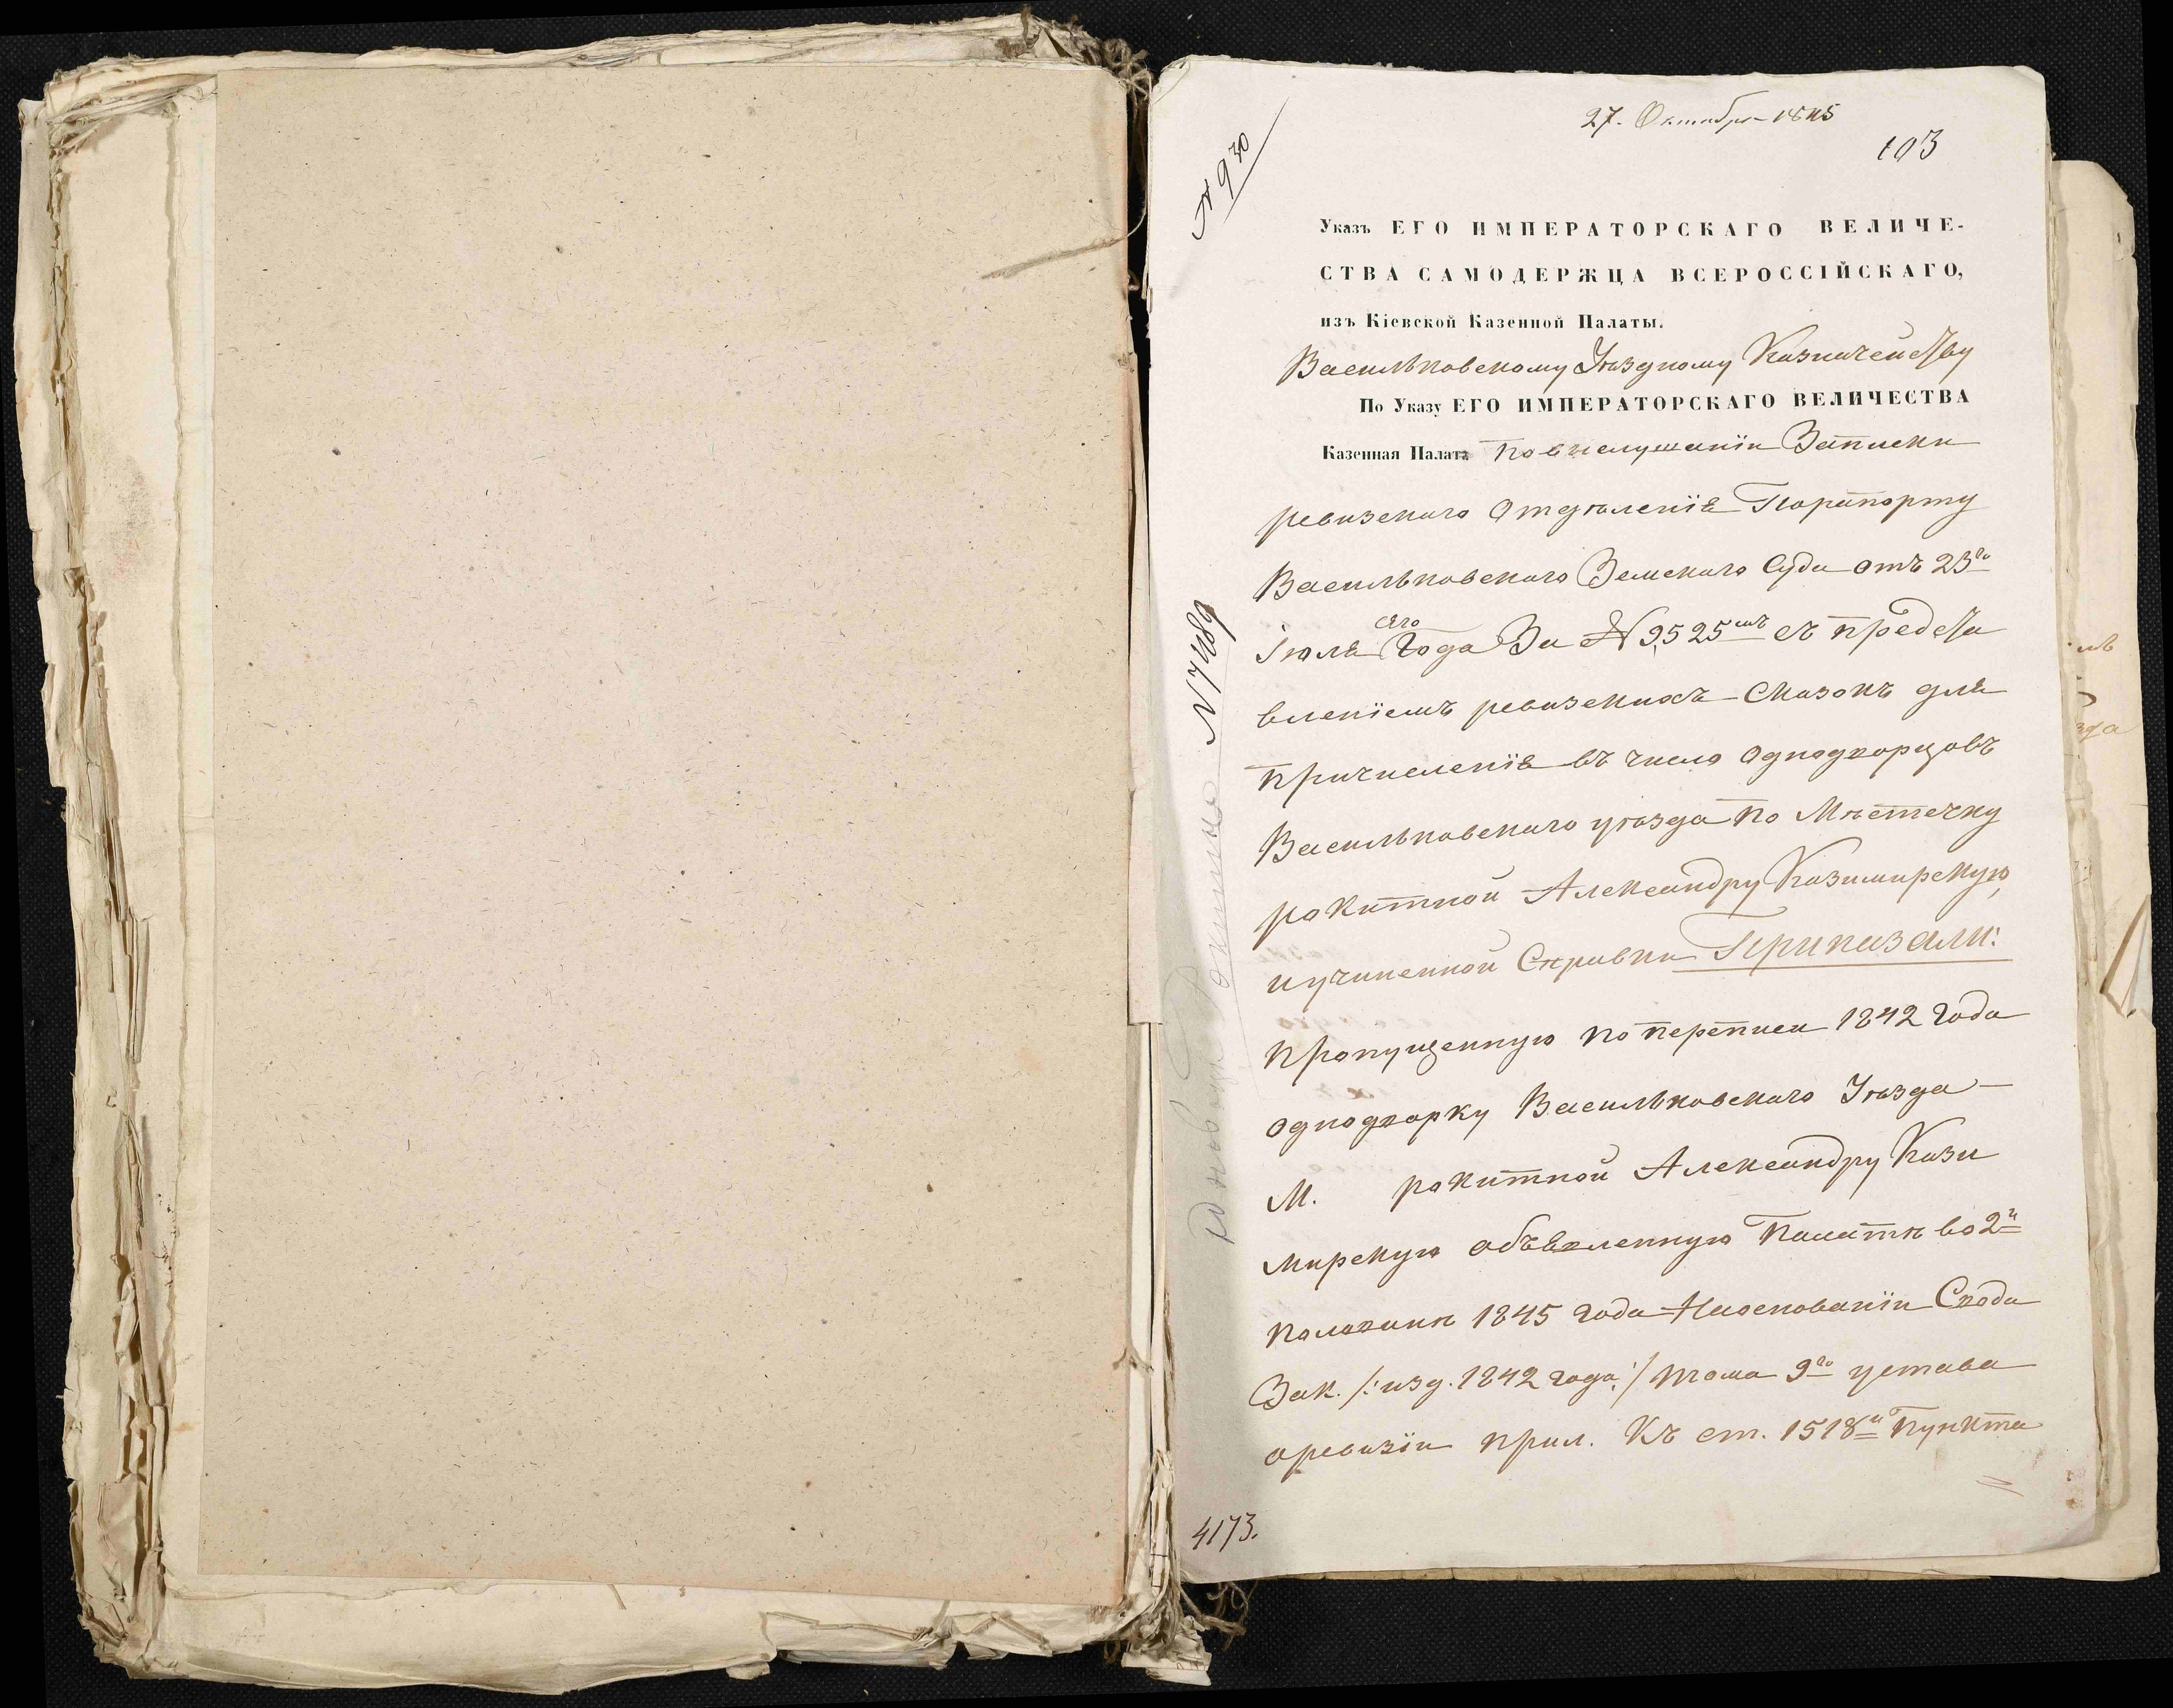 27. Октября 1845
103
№ 930
Указъ ЕГО ИМПЕРАТОРСКАГО ВЕЛИЧЕ-
СТВА САМОДЕРЖЦА ВСЕРОССІЙСКАГО,
изъ Кіевской Казенной Палаты.
Васильковскому Уѣздному Казначейству
По Указу ЕГО ИМПЕРАТОРСКАГО ВЕЛИЧЕСТВА
Казенная Палата По выслушаніи Записки
ревизскаго Отдѣленія По рапорту
Васильковскаго Земскаго Суда отъ 23го
Іюля сего Года За № 9525мъ съ предста
вленіемъ ревизскихъ Сказокъ для
причисленія въ число однодворцовъ
Васильковскаго уѣзда по Мѣстечку
рокитной Александру Казимирскую,
и учиненной Справки Приказали:
пропущенную по переписи 1842 года
однодворку Васильковскаго Уѣзда
М. рокитной Александру Кази
мирскую объявленную Палатѣ во 2й
половинѣ 1845 года На основаніи Свода
Зак. /: изд. 1842 года :/ тома 9го устава
о ревизіи прил. Къ ст. 1518й Пункта
№ 7489
4173.